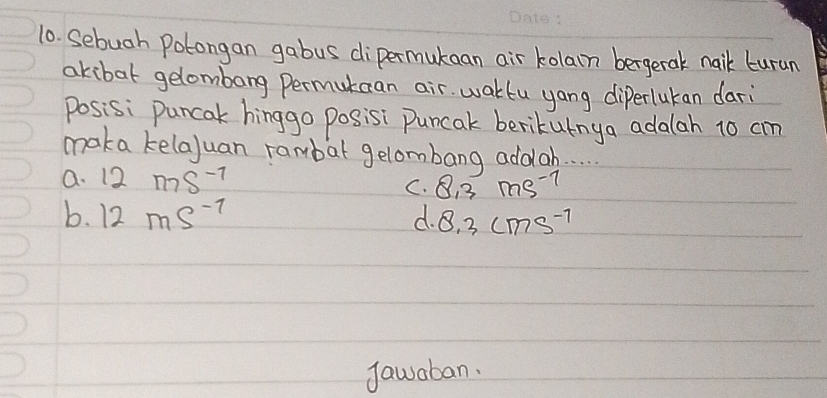 Date :
10. Sebuah Potongan gabus di permukaan air kolam bergerak naik turun
akibat gelombang Permukaan air. waktu yang diperlukan dari
Posisi Puncak hingga posisi Puncak berikutnya adalah 10 cm
maka kelajuan rambat gelombang adalah.....
a. 12 ms⁻¹ c. 8,3 ms⁻¹
b. 12 ms⁻¹ d. 8,3 cms⁻¹
Jawaban.